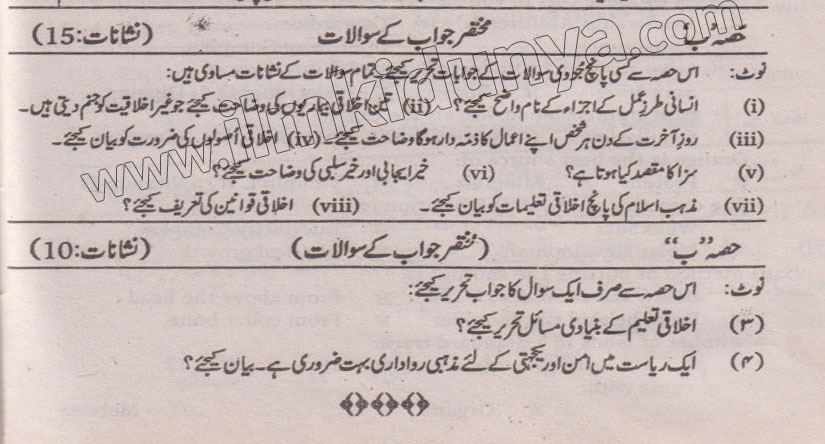 حصہ ”ب“ مختصر جواب کے سوالات (نشانات: 15)
نوٹ: اس حصہ سے کسی پانچ جزوی سوالات کے جوابات تحریر کیجئے۔ تمام سوالات کے نشانات مساوی ہیں:
(i) انسانی طرزِ عمل کے اجزاء کے نام واضح کیجئے؟ (ii) تین اخلاقی بیماریوں کی وضاحت کیجئے جو غیر اخلاقیت کو جنم دیتی ہیں۔
(iii) روزِ آخرت کے دن ہر شخص اپنے اعمال کا ذمہ دار ہوگا وضاحت کیجئے۔ (iv) اخلاقی اُصولوں کی ضرورت کو بیان کیجئے۔
(v) سزا کا مقصد کیا ہوتا ہے؟ (vi) خیر ایجابی اور خیر سلبی کی وضاحت کیجئے؟
(vii) مذہب اسلام کی پانچ اخلاقی تعلیمات کو بیان کیجئے۔ (viii) اخلاقی قوانین کی تعریف کیجئے؟
حصہ ”ب“ (مختصر جواب کے سوالات) (نشانات: 10)
نوٹ: اس حصہ سے صرف ایک سوال کا جواب تحریر کیجئے:
(۳) اخلاقی تعلیم کے بنیادی مسائل تحریر کیجئے؟
(۴) ایک ریاست میں امن اور یکجہتی کے لئے مذہبی رواداری بہت ضروری ہے۔ بیان کیجئے؟
www.ilmkidunya.com